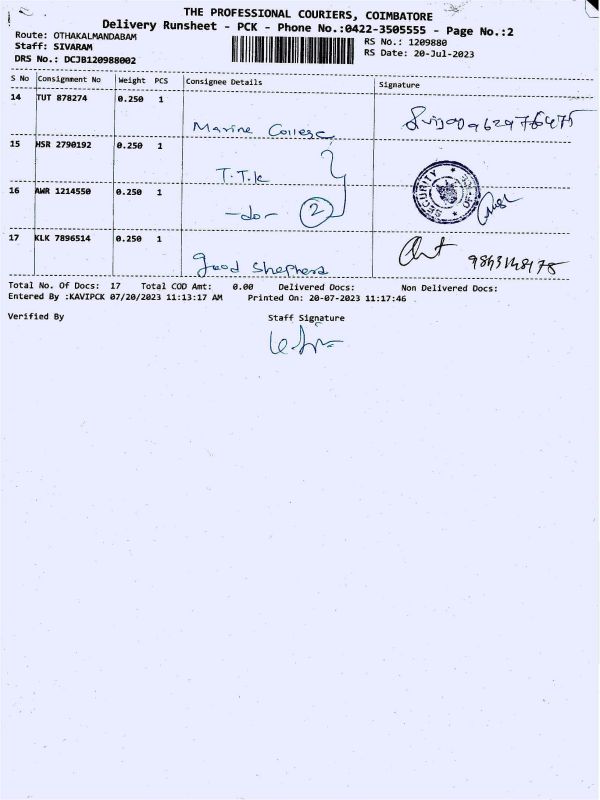 THE PROFESSIONAL COURIERS, COIMBATORE
Delivery Runsheet - PCK - Phone No.:0422-3505555 - Page No.:2
Route: OTHAKALMANDABAM
Staff: SIVARAM
DRS No.: DCJB120988002
RS No.: 1209880
RS Date: 20-Jul-2023
S No Consignment No Weight PCS Consignee Details Signature
14 TUT 878274 0.250 1
Marine College
15 HSR 2790192 0.250 1
T.T.K
SECURITY
16 AWR 1214550 0.250 1
-do- 2
17 KLK 7896514 0.250 1
Good Shepherd
Total No. Of Docs: 17 Total COD Amt: 0.00 Delivered Docs: Non Delivered Docs:
Entered By :KAVIPCK 07/20/2023 11:13:17 AM Printed On: 20-07-2023 11:17:46
Verified By Staff Signature